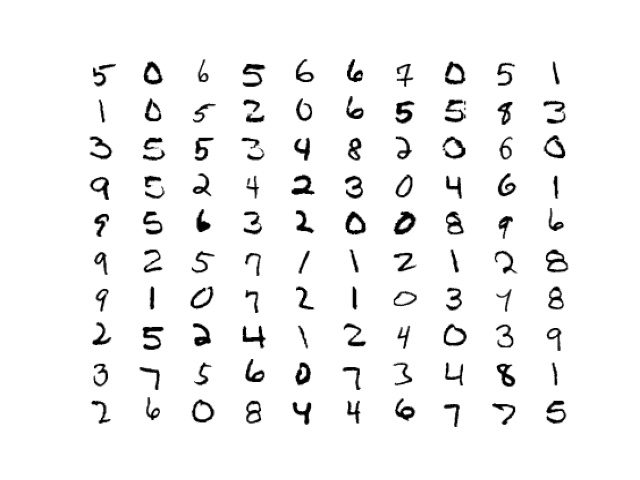 5 0 6 5 6 6 7 0 5 1
1 0 5 2 0 6 5 5 8 3
3 5 5 3 4 8 2 0 6 0
9 5 2 4 2 3 0 4 6 1
9 5 6 3 2 0 0 8 9 6
9 2 5 7 1 1 2 1 2 8
9 1 0 7 2 1 0 3 4 8
2 5 2 4 1 2 4 0 3 9
3 7 5 6 0 7 3 4 8 1
2 6 0 8 4 4 6 7 7 5